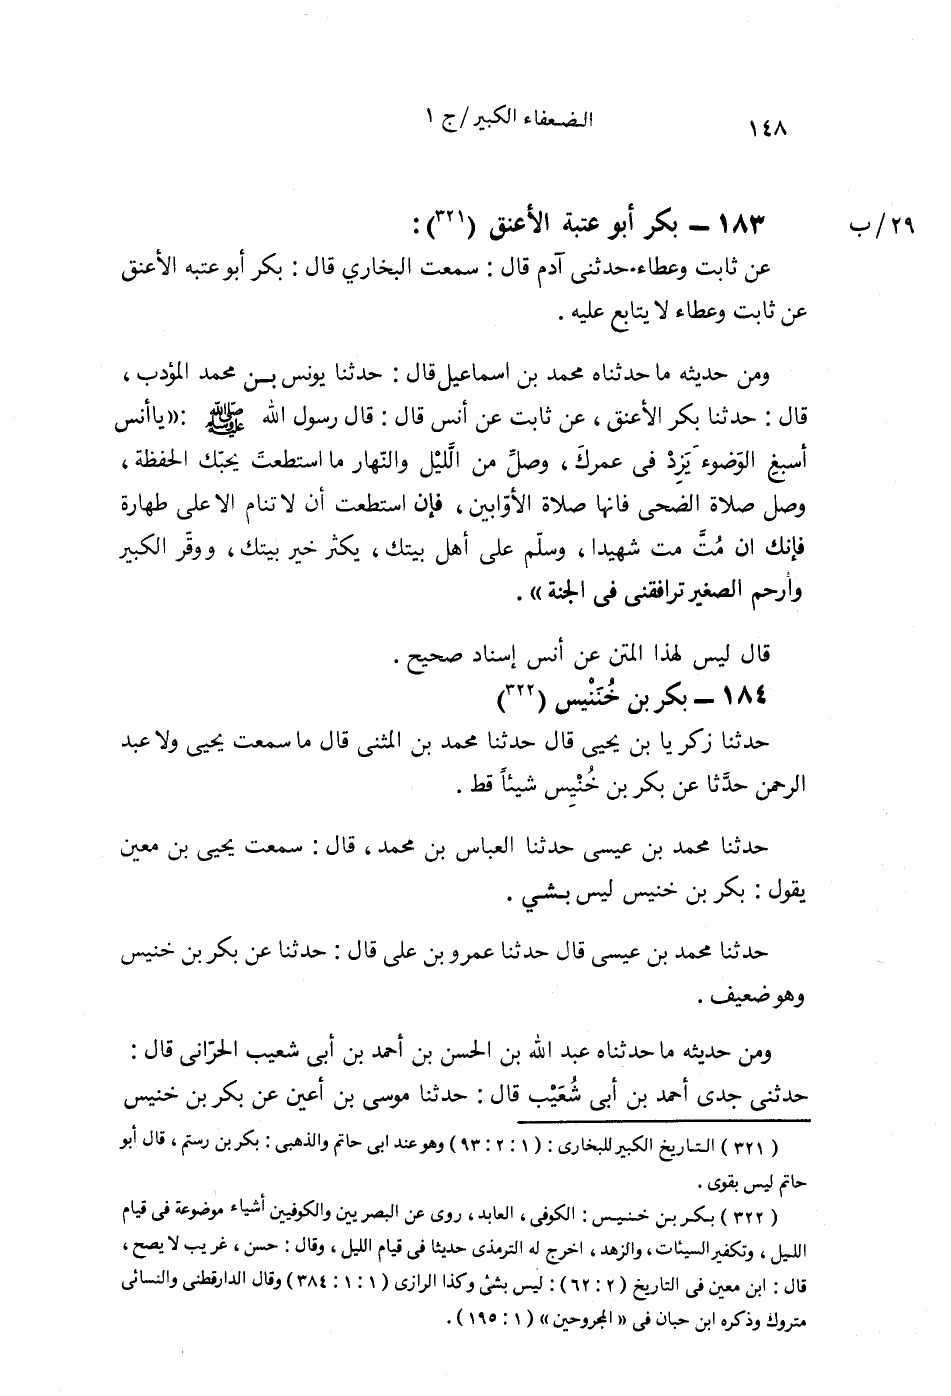 ١٤٨
الضعفاء الكبير/ج ١
٢٩/ب
١٨٣ – بكر أبو عتبة الأعنق (٣٢١):
عن ثابت وعطاء. حدثنى آدم قال : سمعت البخاري قال : بكر أبو عتبه الأعنق
عن ثابت وعطاء لا يتابع عليه .
ومن حديثه ما حدثناه محمد بن اسماعيل قال : حدثنا يونس بـن محمد المؤدب ،
قال : حدثنا بكر الأعنق ، عن ثابت عن أنس قال : قال رسول الله ﷺ :«ياأنس
أسبغِ الوَضوء يَزِدْ فى عمركَ ، وصلِّ من الَّليْل والنّهار ما استطعتَ يحبّك الحفظة ،
وصل صلاة الضحى فانها صلاة الأوّابين ، فإن استطعت أن لا تنام الا على طهارة
فإنك ان مُتَّ مت شهيدا ، وسلّم على أهل بيتك ، يكثر خير بيتك ، ووقّر الكبير
وأرحم الصغير ترافقنى فى الجنة » .
قال ليس لهذا المتن عن أنس إسناد صحيح .
١٨٤ – بكر بن خُنَنْيس (٣٢٢)
حدثنا زكر يا بن يحيى قال حدثنا محمد بن المثنى قال ما سمعت يحيى ولا عبد
الرحمن حدَّثا عن بكر بن خُنْيِس شيئاً قط .
حدثنا محمد بن عيسى حدثنا العباس بن محمد ، قال : سمعت يحيى بن معين
يقول : بكر بن خنيس ليس بـشي .
حدثنا محمد بن عيسى قال حدثنا عمرو بن على قال : حدثنا عن بكر بن خنيس
وهو ضعيف .
ومن حديثه ما حدثناه عبد الله بن الحسن بن أحمد بن أبى شعيب الحرّانى قال :
حدثنى جدى أحمد بن أبى شُعَيْب قال : حدثنا موسى بن أعين عن بكر بن خنيس
( ٣٢١ ) التاريخ الكبير للبخارى : ( ١ : ٢ : ٩٣) وهو عند ابى حاتم والذهبى : بكر بن رستم ، قال أبو
حاتم ليس بقوى .
( ٣٢٢ ) بكر بن خنيس : الكوفى ، العابد ، روى عن البصريين والكوفيين أشياء موضوعة فى قيام
الليل ، وتكفير السيئات ، والزهد ، اخرج له الترمذى حديثا فى قيام الليل ، وقال : حسن ، غريب لا يصح ،
قال : ابن معين فى التاريخ (٢ : ٦٢) : ليس بشئ وكذا الرازى (١ : ١ : ٣٨٤) وقال الدارقطنى والنسائى
متروك وذكره ابن حبان فى « المجروحين » (١ : ١٩٥).